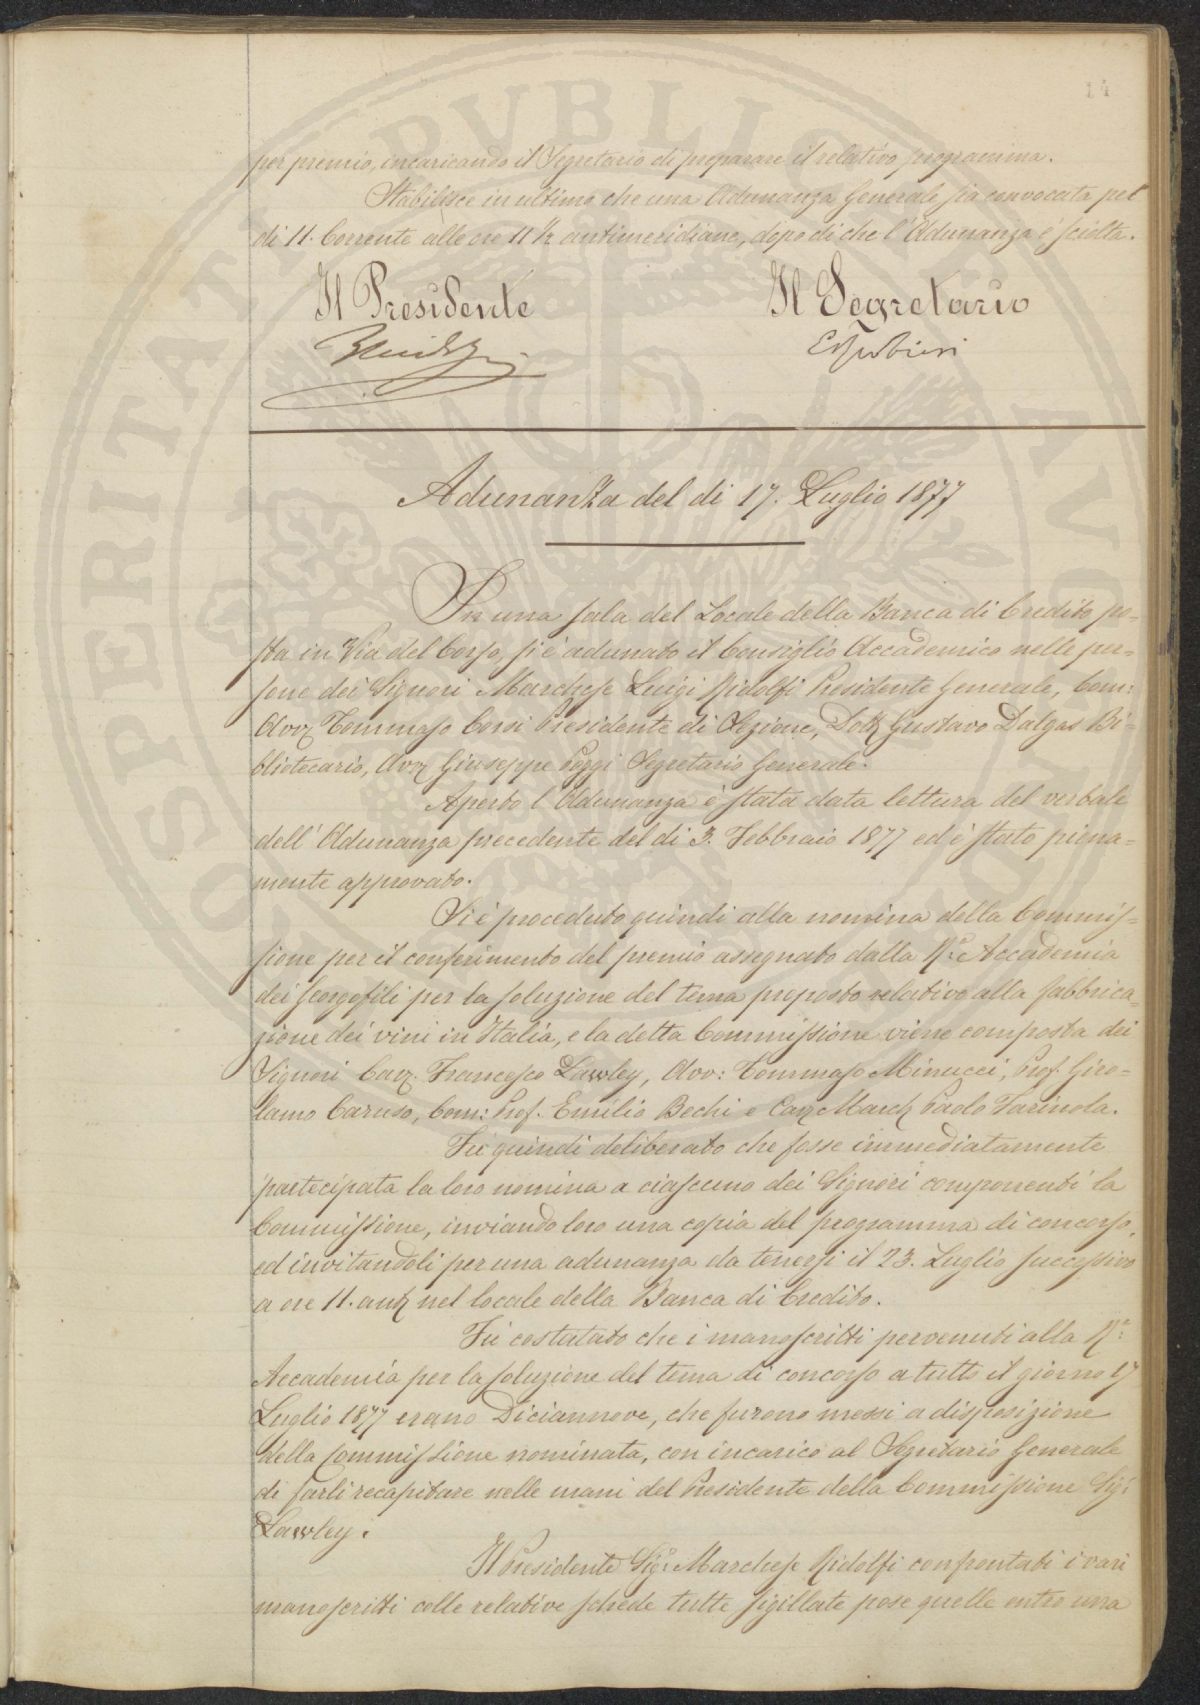 14
per premio, incaricando il Segretario di preparare il relativo programma.
Stabilisce in ultimo che una Adunanza Generale sia convocata pel
di 11. Corrente alle ore 11 ½ antimeridiane, dopo di che l'Adunanza è sciolta.
Il Presidente
Il Segretario
Adunanza del di 17. Luglio 1877
In una sala del Locale della Banca di Credito po-
sta in Via del Corso, si è adunato il Consiglio Accademico nelle per-
sone dei Signori Marchese Luigi Ridolfi Presidente Generale, Com:
Avv. Tommaso Corsi Presidente di Sezione, Dott. Gustavo Dalgas Bi-
bliotecario, Avv. Giuseppe Poggi Segretario Generale.
Aperto l'Adunanza è stata data lettura del verbale
dell'Adunanza precedente del di 3. Febbraio 1877 ed è stato piena-
mente approvato.
Si è proceduto quindi alla nomina della Commis-
sione per il conferimento del premio assegnato dalla Rª. Accademia
dei Georgofili per la soluzione del tema proposto relativo alla fabbrica-
zione dei vini in Italia, e la detta Commissione viene composta dei
Signori Cav. Francesco Lawley, Avv: Tommaso Minucci, Prof. Giro-
lamo Caruso, Com: Prof. Emilio Bechi e Cav. March. Paolo Farinola.
Fu quindi deliberato che fosse immediatamente
partecipata la loro nomina a ciascuno dei Signori componenti la
Commissione, inviando loro una copia del programma di concorso,
ed invitandoli per una adunanza da tenersi il 23. Luglio successivo
a ore 11. ant. nel locale della Banca di Credito.
Fu costatato che i manoscritti pervenuti alla Rª.
Accademia per la soluzione del tema di concorso a tutto il giorno 17
Luglio 1877 erano Diciannove, che furono messi a disposizione
della Commissione nominata, con incarico al Segretario Generale
di farli recapitare nelle mani del Presidente della Commissione Sig:
Lawley.
Il Presidente Sigr: Marchese Ridolfi confrontati i vari
manoscritti colle relative schede tutte sigillate pose quelle entro una
PROSPERITATI PVBLICAE AVGENDAE